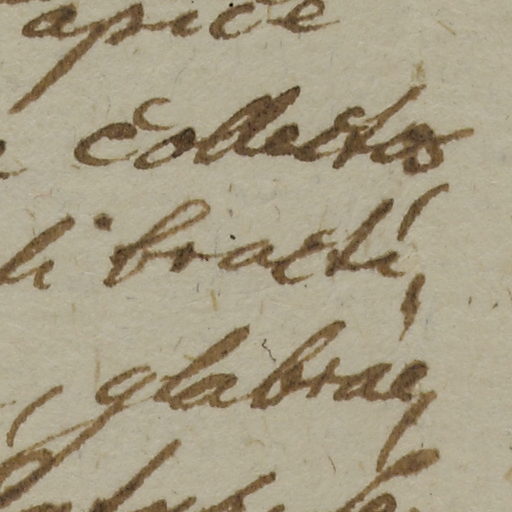 apice
collectos
li bracti,
, glabrae,